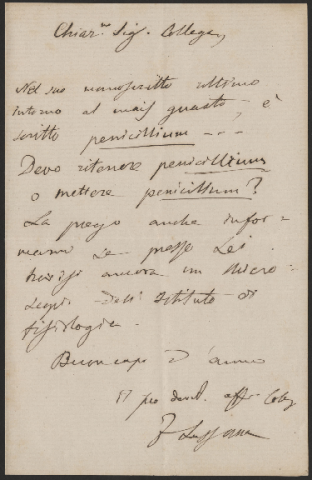 Chiar.mo Sig. Collega,
Nel suo manoscritto ultimo
intorno al mais guasto - è
scritto penicillium - ?
Devo ritenere penicillium
o mettere penicillum?
La prego anche infor-
marmi se presso Lei
trovisi ancora un micro-
scopio dell'Istituto di
fisiologia.
Buon capo d'anno
Il suo dev. aff. Colleg
F Lussana